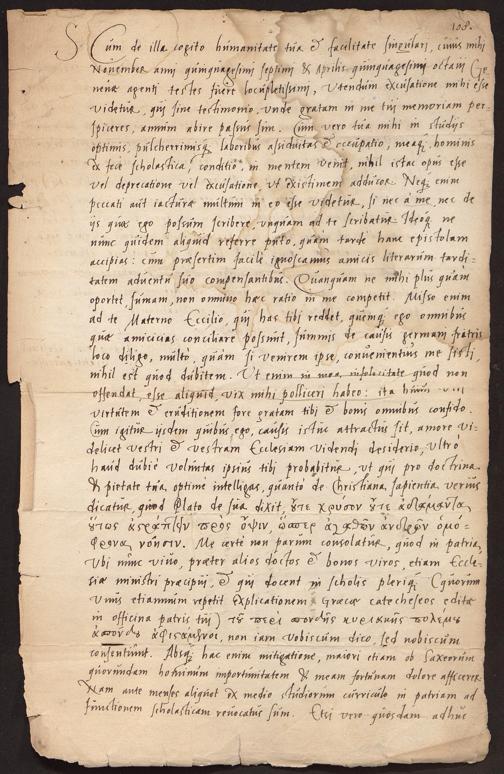 108.
S. Cum de illa cogito humanitate tua & facilitate singulari, cuius mihi
November anni quinquagesimi septimi & Aprilis quinquagesimi octaui Ge-
neuae agenti testes fuere locupletissimi, vtendum excusatione mihi esse
videtur, qui sine testimonio, unde gratam in me tui memoriam per-
spiceres, annum abire passus sim. Cum vero tua mihi in studijs
optimis, pulcherrimisq; laboribus assiduitas & occupatio, meaq; hominis
ex fece scholastica, conditio, in mentem venit, nihil istac opus esse
vel deprecatione vel excusatione, vt existimem adducor. Neq; enim
peccati aut iacturae multum in eo esse videtur, si nec a me, nec de
ijs quae ego possum scribere, unquam ad te scribatur. Ideoq; ne
nunc quidem aliquid referre puto, quam tarde hanc epistolam
accipias: cum praesertim facile ignoscamus amicis literarum tardi-
tatem aduentu suo compensantibus. Quanquam ne mihi plus quam
oportet sumam, non omnino haec ratio in me competit. Misso enim
ad te Materno Eccilio, qui has tibi reddet, quemq; ego omnibus
quae amicicias conciliare possunt, summis de causis germani fratris
loco diligo, multo, quam si venirem ipse, conuenientius me sisti,
nihil est quod dubitem. Vt enim in mea, insolacitate quod non
offendat, esse aliquid, vix mihi polliceri habeo: ita huius
virtutem & eruditionem fore gratam tibi & bonis omnibus confido.
Cum igitur ijsdem quibus ego, causis istuc attractus sit, amore vi-
delicet vestri & vestram Ecclesiam videndi desiderio, vltro
haud dubie voluntas ipsius tibi probabitur, vt qui pro doctrina
& pietate tua, optime intelligas, quanto de Christiana, sapientia verius
dicatur, quod Plato de sua dixit, ὄυτε χρυσὸν ὄυτε ἀδάμαντα
ὄυτως ἀστράπτειν πρὸς ὄψιν, ὥσπερ ἀγαθῶν ἀνδρῶν ὁμο-
φρονα νόησιν. Me certe non parum consolatur, quod in patria,
vbi nunc viuo, praeter alios doctos & bonos viros, etiam Eccle-
siae ministri praecipui, & qui docent in scholis pleriq; (quorum
vnus etiamnum repetit explicationem Graecae catecheseos editae
in officina patris tui) τοῦ περὶ κυριακῆς πολέμου
ἀσπόνδου ἀφιστάμενοι, non iam vobiscum dico, sed nobiscum
consentiunt. Absq; hac enim mitigatione, maiori etiam ob Saxonum
quorundam hominum importunitatem & meam fortunam dolore afficerer.
Nam ante menses aliquot ex medio studiorum curriculo in patriam ad
functionem scholasticam reuocatus sum. Etsi vero quosdam adhuc